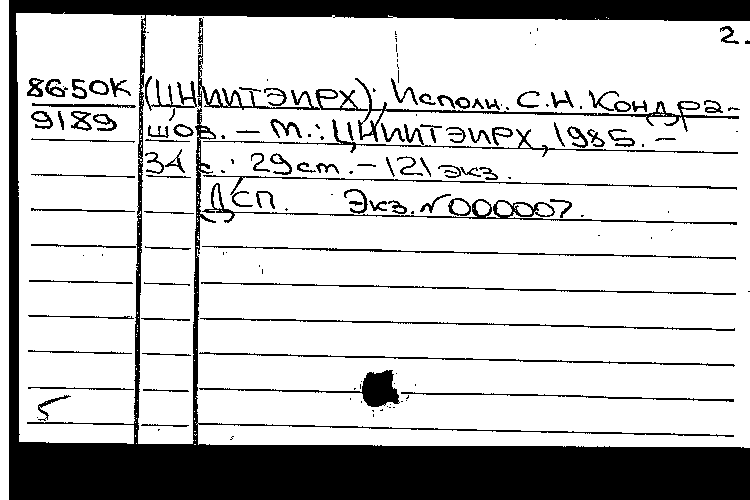 2.
86-50К (ЦНИИТЭИРХ); Исполн. С.Н. Кондра-
9189 шов. – М.: ЦНИИТЭИРХ, 1985. –
34 с.: 29 см. – 121 экз.
ДСП. Экз. №000007.
5